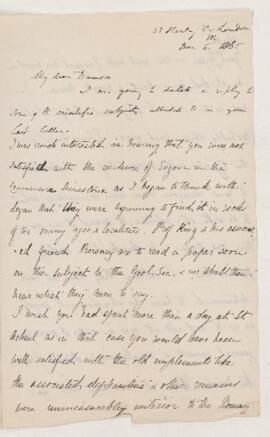 53 Harley St. London
W.
Dec 6, 1865
My dear Dawson
I am going to dictate a reply to
some of the scientific subjects alluded to in your
last letter.
I was much interested in hearing that you were not
satisfied with the evidence of Eozoon in the
Connemara limestone as I began to think with
Logan that they were beginning to find it in rock
of too many ages & localities. Prof King & his associat
-ed friend Rooney are to read a paper soon
on this subject to the Geol. Soc. & we shall then
hear what they have to say.
I wish you had spent more than a day at St
Acheul as in that case you would have been
well satisfied with the old implements like
the associated elephantine & other remains
were immeasurably anterior to the Roman